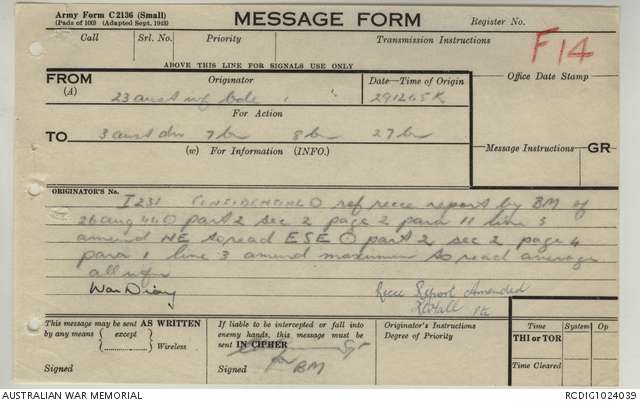 Army Form C2136 (Small)
(Pads of 100) (Adapted Sept. 1943)
MESSAGE FORM
Register No.
Call Srl. No. Priority Transmission Instructions
F14
ABOVE THIS LINE FOR SIGNALS USE ONLY
FROM
(A)
Originator
Date—Time of Origin
Office Date Stamp
23 aust inf bde 291245K
For Action
TO
3 aust div 7 bn 8 bn 27 bn
(w) For Information (INFO.)
Message Instructions GR
ORIGINATOR'S No.
I 231 CONFIDENTIAL O ref recce report by BM of
26 aug 44 O part 2 sec 2 page 2 para 11 line 3
amend NE to read ESE O part 2 sec 2 page 4
para 1 line 3 amend maximum to read average
all infm
War Diary
Recce Report Amended
This message may be sent AS WRITTEN
by any means ( except )
Wireless
Signed
If liable to be intercepted or fall into
enemy hands, this message must be
sent IN CIPHER
for
Signed BM
Originator's Instructions
Degree of Priority
Time System Op
THI or TOR
Time Cleared
AUSTRALIAN WAR MEMORIAL
RCDIG1024039